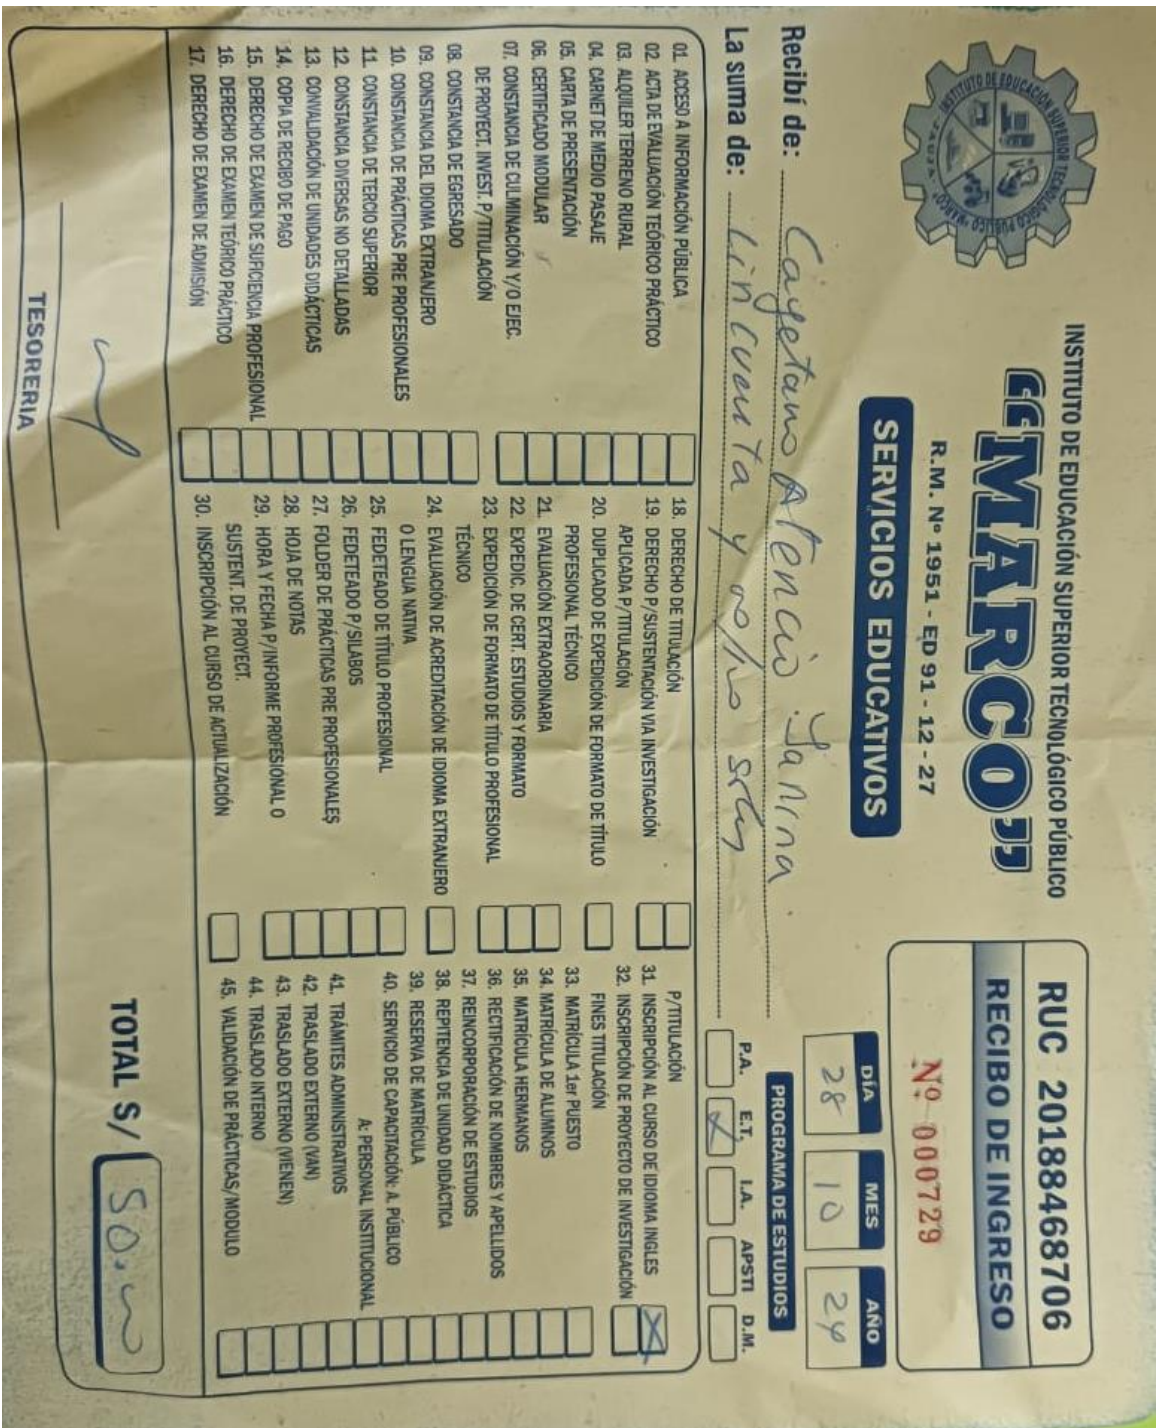 INSTITUTO DE EDUCACIÓN SUPERIOR TECNOLÓGICO PÚBLICO
INSTITUTO DE EDUCACIÓN SUPERIOR TECNOLÓGICO PÚBLICO "MARCO"
- JAUJA -
“MARCO”
R.M. Nº 1951 - ED 91 - 12 - 27
SERVICIOS EDUCATIVOS
RUC 20188468706
RECIBO DE INGRESO
Nº 000729
DÍA MES AÑO
28 10 24
Recibí de: Cayetano Atencio Janina
La suma de: Cincuenta y 00/100 soles
PROGRAMA DE ESTUDIOS
P.A. E.T. I.A. APSTI D.M.
X
01. ACCESO A INFORMACIÓN PÚBLICA
02. ACTA DE EVALUACIÓN TEÓRICO PRÁCTICO
03. ALQUILER TERRENO RURAL
04. CARNET DE MEDIO PASAJE
05. CARTA DE PRESENTACIÓN
06. CERTIFICADO MODULAR
07. CONSTANCIA DE CULMINACIÓN Y/O EJEC.
DE PROYECT. INVEST. P/TITULACIÓN
08. CONSTANCIA DE EGRESADO
09. CONSTANCIA DEL IDIOMA EXTRANJERO
10. CONSTANCIA DE PRÁCTICAS PRE PROFESIONALES
11. CONSTANCIA DE TERCIO SUPERIOR
12. CONSTANCIA DIVERSAS NO DETALLADAS
13. CONVALIDACIÓN DE UNIDADES DIDÁCTICAS
14. COPIA DE RECIBO DE PAGO
15. DERECHO DE EXAMEN DE SUFICIENCIA PROFESIONAL
16. DERECHO DE EXAMEN TEÓRICO PRÁCTICO
17. DERECHO DE EXAMEN DE ADMISIÓN
18. DERECHO DE TITULACIÓN
19. DERECHO P/SUSTENTACIÓN VIA INVESTIGACIÓN
APLICADA P/TITULACIÓN
20. DUPLICADO DE EXPEDICIÓN DE FORMATO DE TÍTULO
PROFESIONAL TÉCNICO
21. EVALUACIÓN EXTRAORDINARIA
22. EXPEDIC. DE CERT. ESTUDIOS Y FORMATO
23. EXPEDICIÓN DE FORMATO DE TÍTULO PROFESIONAL
TÉCNICO
24. EVALUACIÓN DE ACREDITACIÓN DE IDIOMA EXTRANJERO
O LENGUA NATIVA
25. FEDETEADO DE TÍTULO PROFESIONAL
26. FEDETEADO P/SILABOS
27. FOLDER DE PRÁCTICAS PRE PROFESIONALES
28. HOJA DE NOTAS
29. HORA Y FECHA P/INFORME PROFESIONAL O
SUSTENT. DE PROYECT.
30. INSCRIPCIÓN AL CURSO DE ACTUALIZACIÓN
P/TITULACIÓN
31. INSCRIPCIÓN AL CURSO DE IDIOMA INGLES X
32. INSCRIPCIÓN DE PROYECTO DE INVESTIGACIÓN
FINES TITULACIÓN
33. MATRÍCULA 1er PUESTO
34. MATRÍCULA DE ALUMNOS
35. MATRÍCULA HERMANOS
36. RECTIFICACIÓN DE NOMBRES Y APELLIDOS
37. REINCORPORACIÓN DE ESTUDIOS
38. REPITENCIA DE UNIDAD DIDÁCTICA
39. RESERVA DE MATRÍCULA
40. SERVICIO DE CAPACITACIÓN: A. PÚBLICO
A: PERSONAL INSTITUCIONAL
41. TRÁMITES ADMINISTRATIVOS
42. TRASLADO EXTERNO (VAN)
43. TRASLADO EXTERNO (VIENEN)
44. TRASLADO INTERNO
45. VALIDACIÓN DE PRÁCTICAS/MODULO
TESORERIA
TOTAL S/ 50.00